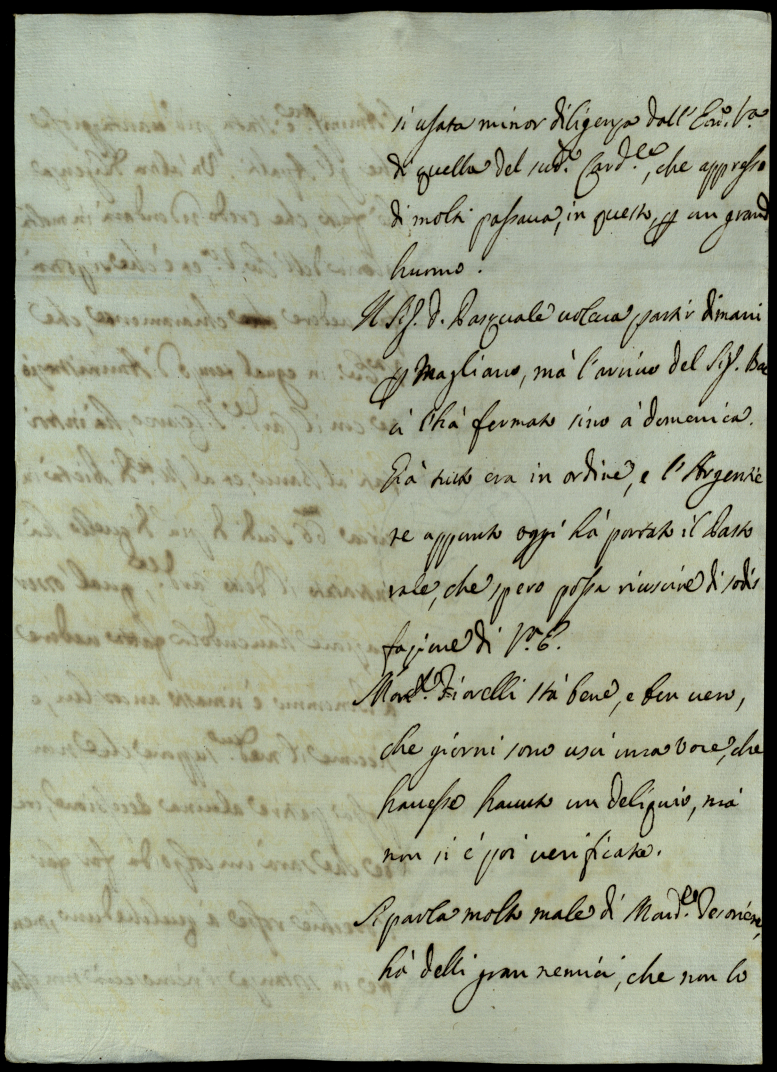 si usata minor diligenza dall'Em. Va.
di quella del sud.o Card.le, che appresso
di molti passava, in questo, p un grand
huomo.
Il Sig. D. Pasquale voleva partir dimani
p Magliano, mà l'arrivo del Sig. Bac
ci l'hà fermato sino à domenica.
Già tutto era in ordine, e l'Argentie
re appunto oggi hà portato il Pasto
rale, che spero possa riuscire di sodis
fazione di V.a E.
Mons.r Fiorelli stà bene, e ben vero,
che giorni sono uscì una voce, che
havesse havuto un deliquio, mà
non si è poi verificato.
Si parla molto male di Tesoriere,
hà delli gran nemici, che non lo